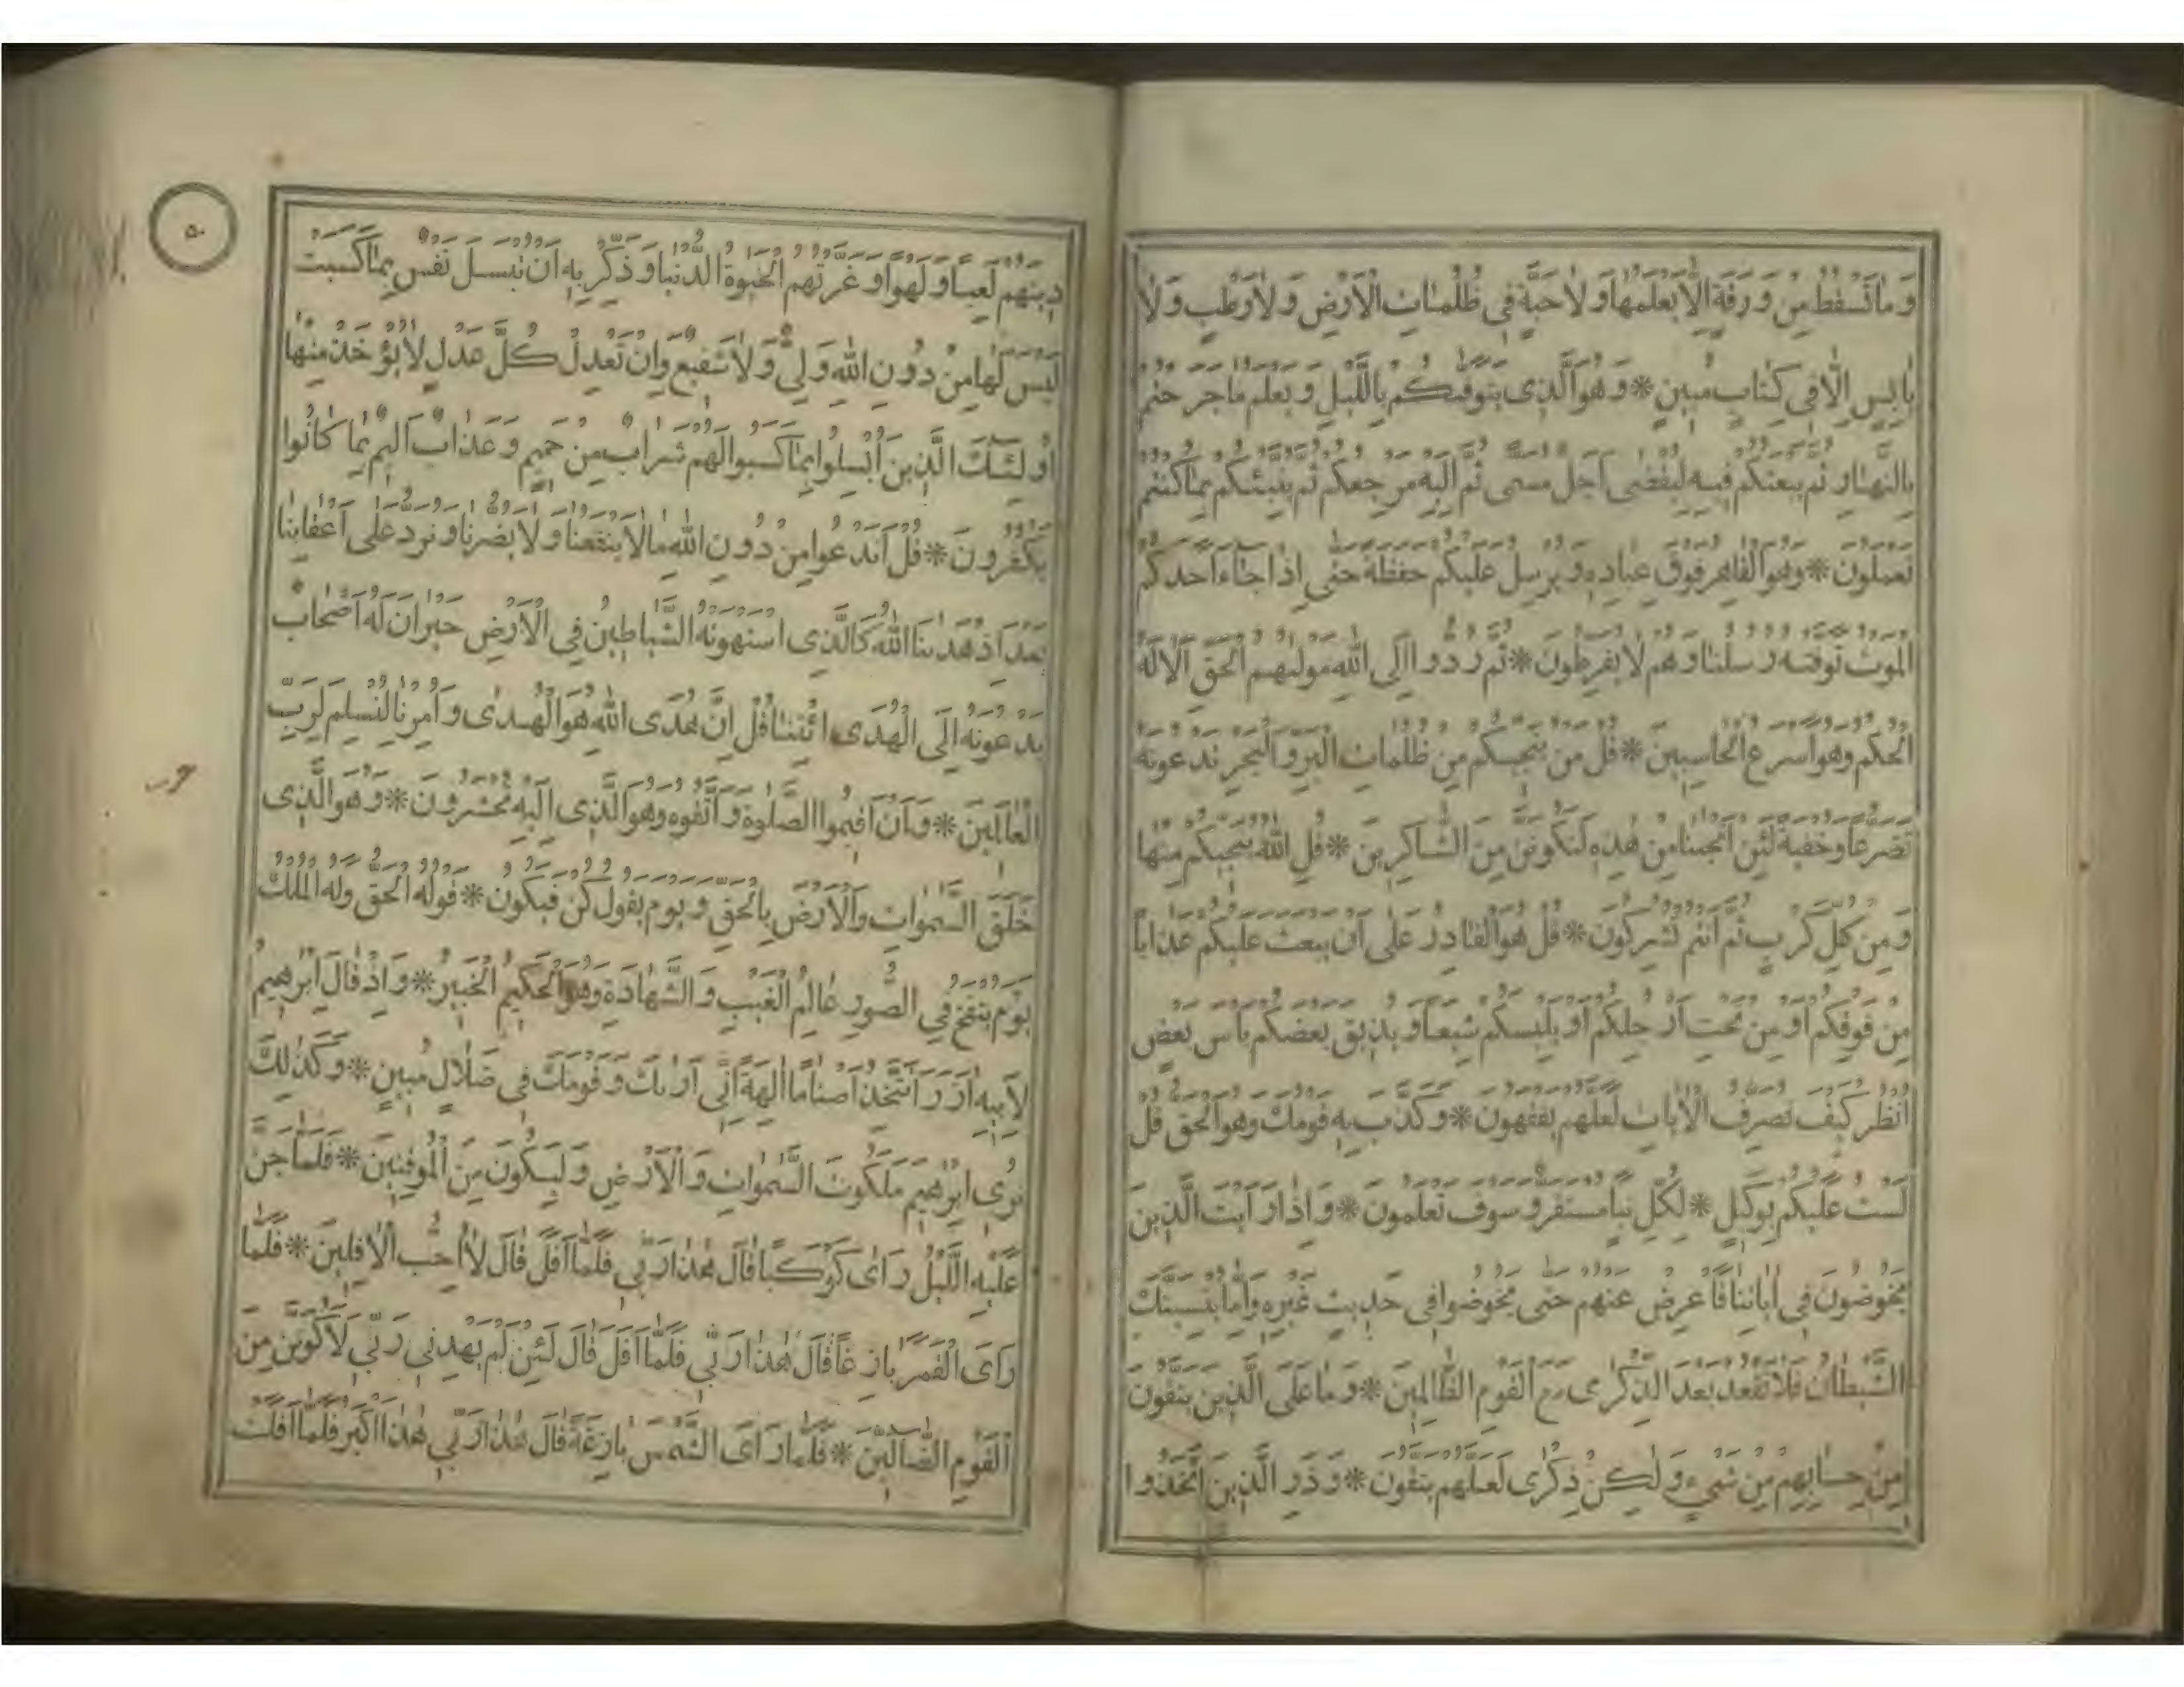 وَمَا تَسْقُطُ مِنْ وَرَقَةٍ اِلَّا يَعْلَمُهَا وَلَا حَبَّةٍ فِي ظُلُمَاتِ الْاَرْضِ وَلَا رَطْبٍ وَلَا
يَابِسٍ اِلَّا فِي كِتَابٍ مُبِينٍ * وَهُوَ الَّذِي يَتَوَفّٰيكُمْ بِاللَّيْلِ وَيَعْلَمُ مَا جَرَحْتُمْ
بِالنَّهَارِ ثُمَّ يَبْعَثُكُمْ فِيهِ لِيُقْضٰى اَجَلٌ مُسَمًّى ثُمَّ اِلَيْهِ مَرْجِعُكُمْ ثُمَّ يُنَبِّئُكُمْ بِمَا كُنْتُمْ
تَعْمَلُونَ * وَهُوَ الْقَاهِرُ فَوْقَ عِبَادِهِ وَيُرْسِلُ عَلَيْكُمْ حَفَظَةً حَتّٰى اِذَا جَاءَ اَحَدَكُمُ
الْمَوْتُ تَوَفَّتْهُ رُسُلُنَا وَهُمْ لَا يُفَرِّطُونَ * ثُمَّ رُدُّوا اِلَى اللّٰهِ مَوْلٰيهُمُ الْحَقِّ اَلَا لَهُ
الْحُكْمُ وَهُوَ اَسْرَعُ الْحَاسِبِينَ * قُلْ مَنْ يُنَجِّيكُمْ مِنْ ظُلُمَاتِ الْبَرِّ وَالْبَحْرِ تَدْعُونَهُ
تَضَرُّعًا وَخُفْيَةً لَئِنْ اَنْجَيْنَا مِنْ هٰذِهِ لَنَكُونَنَّ مِنَ الشَّاكِرِينَ * قُلِ اللّٰهُ يُنَجِّيكُمْ مِنْهَا
وَمِنْ كُلِّ كَرْبٍ ثُمَّ اَنْتُمْ تُشْرِكُونَ * قُلْ هُوَ الْقَادِرُ عَلٰى اَنْ يَبْعَثَ عَلَيْكُمْ عَذَابًا
مِنْ فَوْقِكُمْ اَوْ مِنْ تَحْتِ اَرْجُلِكُمْ اَوْ يَلْبِسَكُمْ شِيَعًا وَيُذِيقَ بَعْضَكُمْ بَأْسَ بَعْضٍ
اُنْظُرْ كَيْفَ نُصَرِّفُ الْاٰيَاتِ لَعَلَّهُمْ يَفْقَهُونَ * وَكَذَّبَ بِهِ قَوْمُكَ وَهُوَ الْحَقُّ قُلْ
لَسْتُ عَلَيْكُمْ بِوَكِيلٍ * لِكُلِّ نَبَأٍ مُسْتَقَرٌّ وَسَوْفَ تَعْلَمُونَ * وَاِذَا رَاَيْتَ الَّذِينَ
يَخُوضُونَ فِي اٰيَاتِنَا فَاَعْرِضْ عَنْهُمْ حَتّٰى يَخُوضُوا فِي حَدِيثٍ غَيْرِهِ وَاِمَّا يُنْسِيَنَّكَ
الشَّيْطَانُ فَلَا تَقْعُدْ بَعْدَ الذِّكْرٰى مَعَ الْقَوْمِ الظَّالِمِينَ * وَمَا عَلَى الَّذِينَ يَتَّقُونَ
مِنْ حِسَابِهِمْ مِنْ شَيْءٍ وَلٰكِنْ ذِكْرٰى لَعَلَّهُمْ يَتَّقُونَ * وَذَرِ الَّذِينَ اتَّخَذُوا
٥٠
دِينَهُمْ لَعِبًا وَلَهْوًا وَغَرَّتْهُمُ الْحَيٰوةُ الدُّنْيَا وَذَكِّرْ بِهِ اَنْ تُبْسَلَ نَفْسٌ بِمَا كَسَبَتْ
لَيْسَ لَهَا مِنْ دُونِ اللّٰهِ وَلِيٌّ وَلَا شَفِيعٌ وَاِنْ تَعْدِلْ كُلَّ عَدْلٍ لَا يُؤْخَذْ مِنْهَا
اُولٰئِكَ الَّذِينَ اُبْسِلُوا بِمَا كَسَبُوا لَهُمْ شَرَابٌ مِنْ حَمِيمٍ وَعَذَابٌ اَلِيمٌ بِمَا كَانُوا
يَكْفُرُونَ * قُلْ اَنَدْعُوا مِنْ دُونِ اللّٰهِ مَا لَا يَنْفَعُنَا وَلَا يَضُرُّنَا وَنُرَدُّ عَلٰى اَعْقَابِنَا
بَعْدَ اِذْ هَدٰينَا اللّٰهُ كَالَّذِي اسْتَهْوَتْهُ الشَّيَاطِينُ فِي الْاَرْضِ حَيْرَانَ لَهُ اَصْحَابٌ
يَدْعُونَهُ اِلَى الْهُدَى ائْتِنَا قُلْ اِنَّ هُدَى اللّٰهِ هُوَ الْهُدٰى وَاُمِرْنَا لِنُسْلِمَ لِرَبِّ
الْعَالَمِينَ * وَاَنْ اَقِيمُوا الصَّلٰوةَ وَاتَّقُوهُ وَهُوَ الَّذِي اِلَيْهِ تُحْشَرُونَ * وَهُوَ الَّذِي
خَلَقَ السَّمٰوَاتِ وَالْاَرْضَ بِالْحَقِّ وَيَوْمَ يَقُولُ كُنْ فَيَكُونُ * قَوْلُهُ الْحَقُّ وَلَهُ الْمُلْكُ
يَوْمَ يُنْفَخُ فِي الصُّورِ عَالِمُ الْغَيْبِ وَالشَّهَادَةِ وَهُوَ الْحَكِيمُ الْخَبِيرُ * وَاِذْ قَالَ اِبْرٰهِيمُ
لِاَبِيهِ اٰزَرَ اَتَتَّخِذُ اَصْنَامًا اٰلِهَةً اِنِّي اَرٰيكَ وَقَوْمَكَ فِي ضَلَالٍ مُبِينٍ * وَكَذٰلِكَ
نُرِي اِبْرٰهِيمَ مَلَكُوتَ السَّمٰوَاتِ وَالْاَرْضِ وَلِيَكُونَ مِنَ الْمُوقِنِينَ * فَلَمَّا جَنَّ
عَلَيْهِ اللَّيْلُ رَاٰى كَوْكَبًا قَالَ هٰذَا رَبِّي فَلَمَّا اَفَلَ قَالَ لَا اُحِبُّ الْاٰفِلِينَ * فَلَمَّا
رَاَى الْقَمَرَ بَازِغًا قَالَ هٰذَا رَبِّي فَلَمَّا اَفَلَ قَالَ لَئِنْ لَمْ يَهْدِنِي رَبِّي لَاَكُونَنَّ مِنَ
الْقَوْمِ الضَّالِّينَ * فَلَمَّا رَاَى الشَّمْسَ بَازِغَةً قَالَ هٰذَا رَبِّي هٰذَا اَكْبَرُ فَلَمَّا اَفَلَتْ